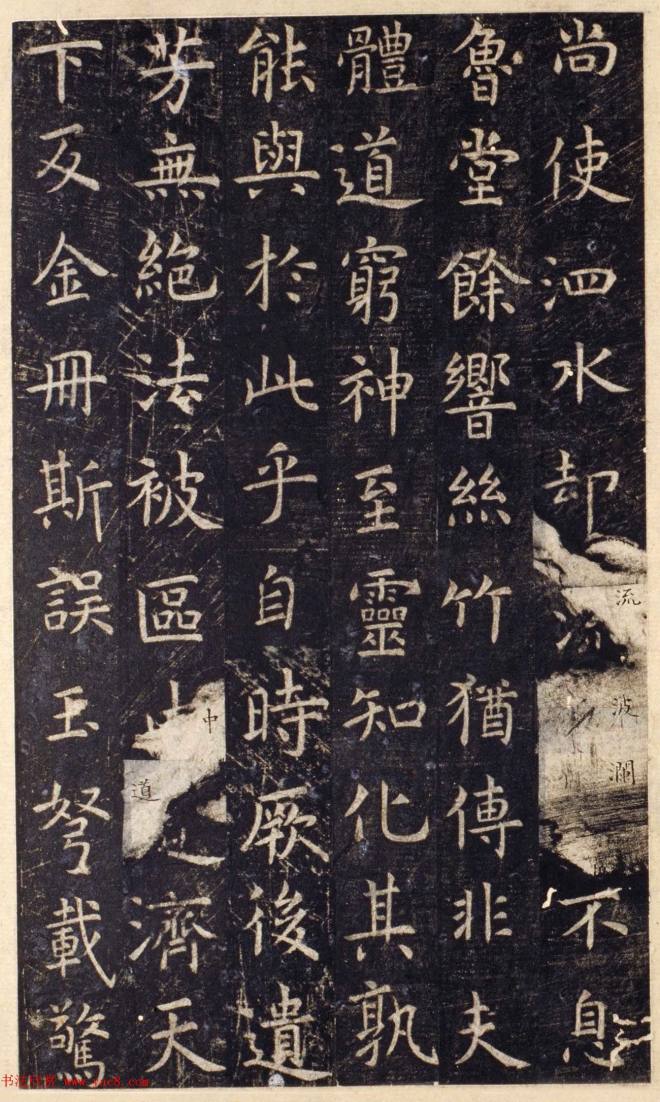 尚使泗水却流波瀾不息
魯堂餘響絲竹猶傳非夫
體道窮神至靈知化其孰
能與於此乎自時厥後遺
芳無絶法被區中道濟天
下及金冊斯誤玉弩載驚
书法欣赏 www.yac8.com